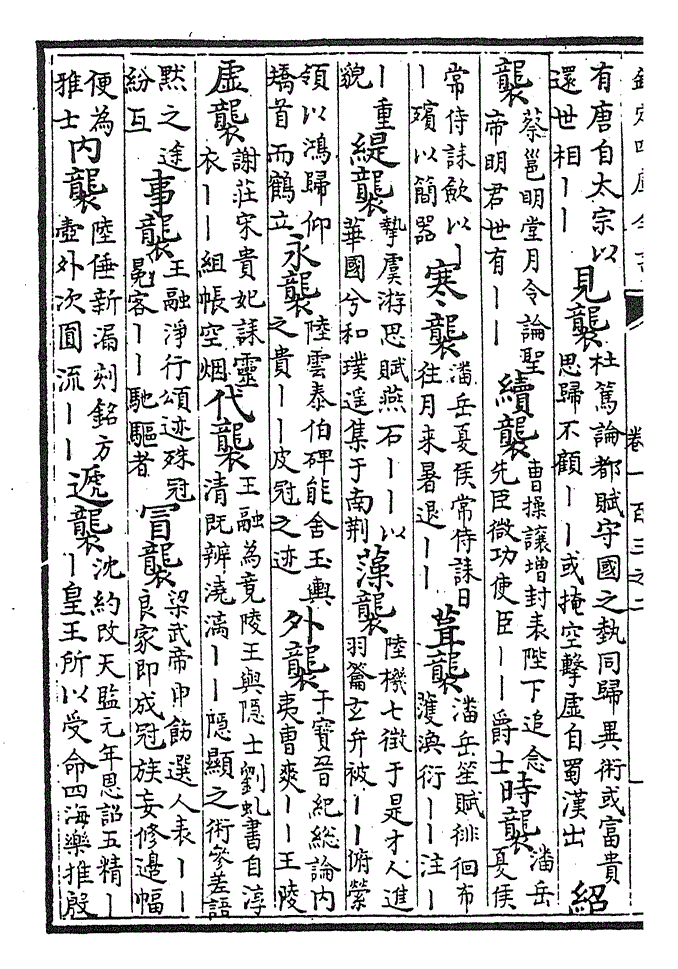 欽定四庫全書 卷一百三之二
有唐自太宗以還世相丨丨 見襲 杜篤論都賦守國之埶同歸異術或富貴思歸不顧丨丨或掩空擊虛自蜀漢出 紹
襲 蔡邕明堂月令論聖帝明君世有丨丨 續襲 曹操讓增封表陛下追念先臣微功使臣丨丨爵士 時襲 潘岳夏侯
常侍誄歛以丨丨殯以簡器 寒襲 潘岳夏侯常侍誄日往月来暑退丨丨 葺襲 潘岳笙賦徘徊布濩渙衍丨丨注丨
丨重貌 緹襲 摯虞游思賦燕石丨丨以華國兮和璞遥集于南荆 藻襲 陸機七徵于是才人進羽籥玄弁被丨丨俯縈
領以鴻歸仰矯首而鶴立 永襲 陸雲泰伯碑能舍玉輿之貴丨丨皮冠之迹 外襲 干寶晉紀総論内夷曹爽丨丨王陵
虛襲 謝莊宋貴妃誄靈衣丨丨組帳空烟 代襲 王融為竟陵王與隱士劉虬書自淳清既辨澆漓丨丨隠顯之術參差語
黙之途紛互 事襲 王融淨行頌迹殊冠冕容丨丨馳驅者 冒襲 梁武帝申飭選人表丨丨良家即成冠族妄修邉幅
便為雅士 内襲 陸倕新漏刻銘方壺外次圓流丨丨 遞襲 沈約改天監元年恩詔五精丨丨皇王所以受命四海樂推殷